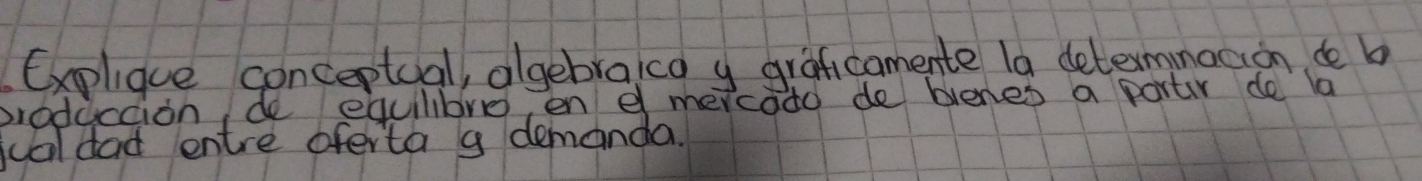 Explique conceptual, algebraica y gráficamente la determinación de la
producción de equilibrio en el mercado de bienes a partir de la
igualdad entre oferta y demanda.